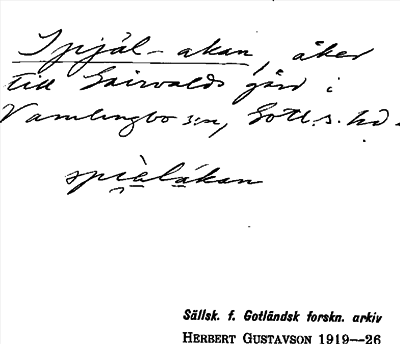 Spjäl-åkan, åker
till Gairvalds gård i
Vamlingbo sn, Gotl.s. hd.
spi̯àlákan
Sällsk. f. Gotländsk forskn. arkiv
HERBERT GUSTAVSON 1919—26